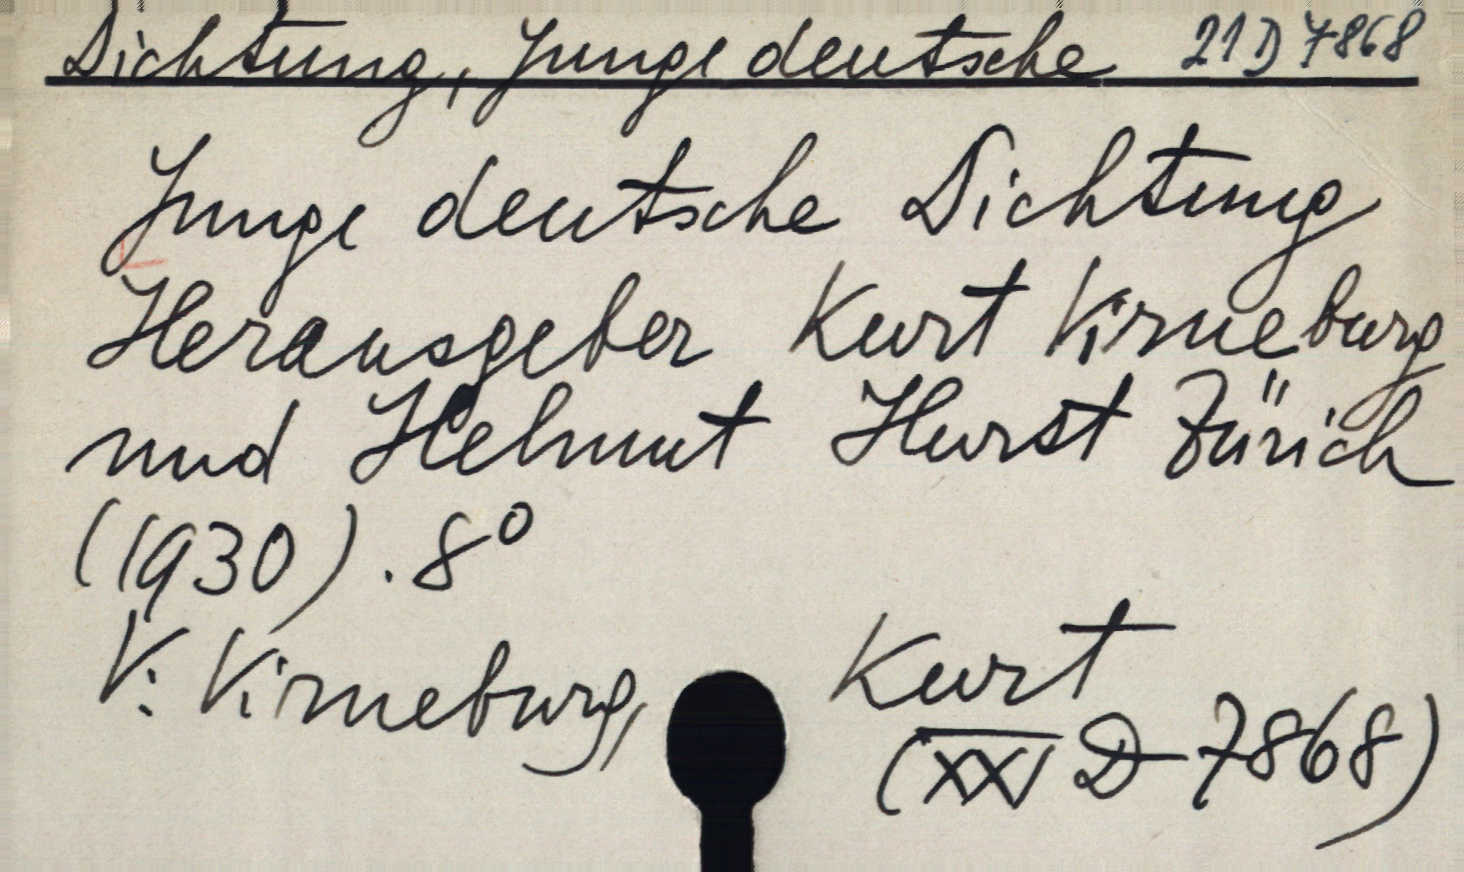 Dichtung, Junge deutsche 21 D 7868
Junge deutsche Dichtung
Herausgeber Kurt Virneburg
und Helmut Hurst Zürich
(1930). 8°
V: Virneburg, Kurt
(XXI D 7868)